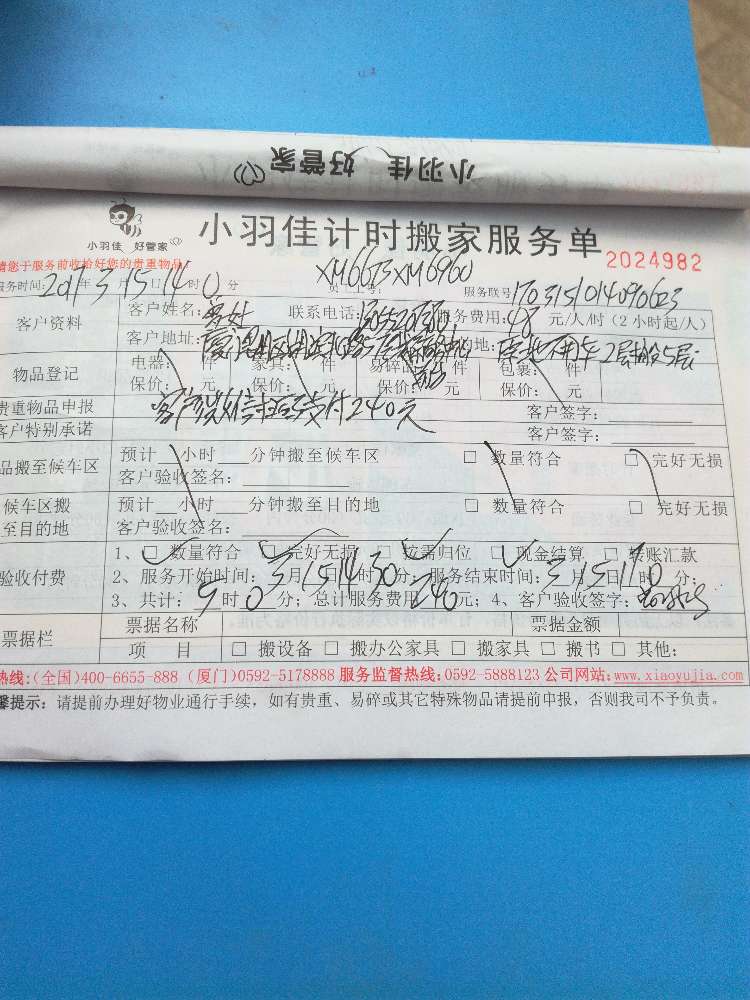 小羽佳 好管家
小羽佳 好管家
小羽佳计时搬家服务单
2024982
请您于服务前收拾好您的贵重物品
服务时间: 2017年3月15日14时0分 员工工号: XM6673 XM6960 服务联号 1703151014090623
客户资料
客户姓名: 联系电话: 服务费用: 48 元/人/时 (2小时起/人)
客户地址: 地址: 2层搬5层
物品登记
电器: 件 家具: 件 易碎品: 件 包裹: 件
保价: 元 保价: 元 保价: 元 保价: 元
贵重物品申报 客户签字:
客户微信 支付240元
客户特别承诺 客户签字:
物品搬至候车区
预计 小时 分钟搬至候车区 □ 数量符合 □ 完好无损
客户验收签名:
候车区搬至目的地
预计 小时 分钟搬至目的地 □ 数量符合 □ 完好无损
客户验收签名:
验收付费
1、□ 数量符合 □ 完好无损 □ 按需归位 □ 现金结算 □ 转账汇款
2、服务开始时间: 3月15日14时30分; 服务结束时间: 3月15日 时 分;
3、共计: 5时0分; 总计服务费用 240元; 4、客户验收签字:
票据栏
票据名称 票据金额
项 目 □ 搬设备 □ 搬办公家具 □ 搬家具 □ 搬书 □ 其他:
热线:(全国)400-6655-888 (厦门)0592-5178888 服务监督热线:0592-5888123 公司网站:www.xiaoyujia.com
馨提示: 请提前办理好物业通行手续, 如有贵重、易碎或其它特殊物品请提前申报, 否则我司不予负责。